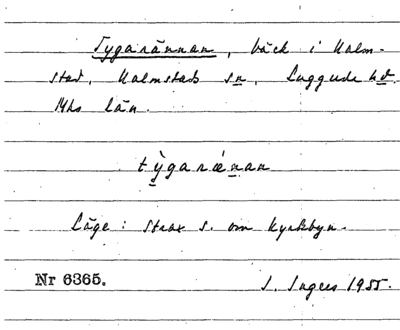 Tygarännan, bäck i Halm-
stad, Halmstads sn, Luggude hd.
Mhs län.
tỳgarǽnan
Läge: strax s. om kyrkbyn.
Nr 6365. I. Ingers 1955.